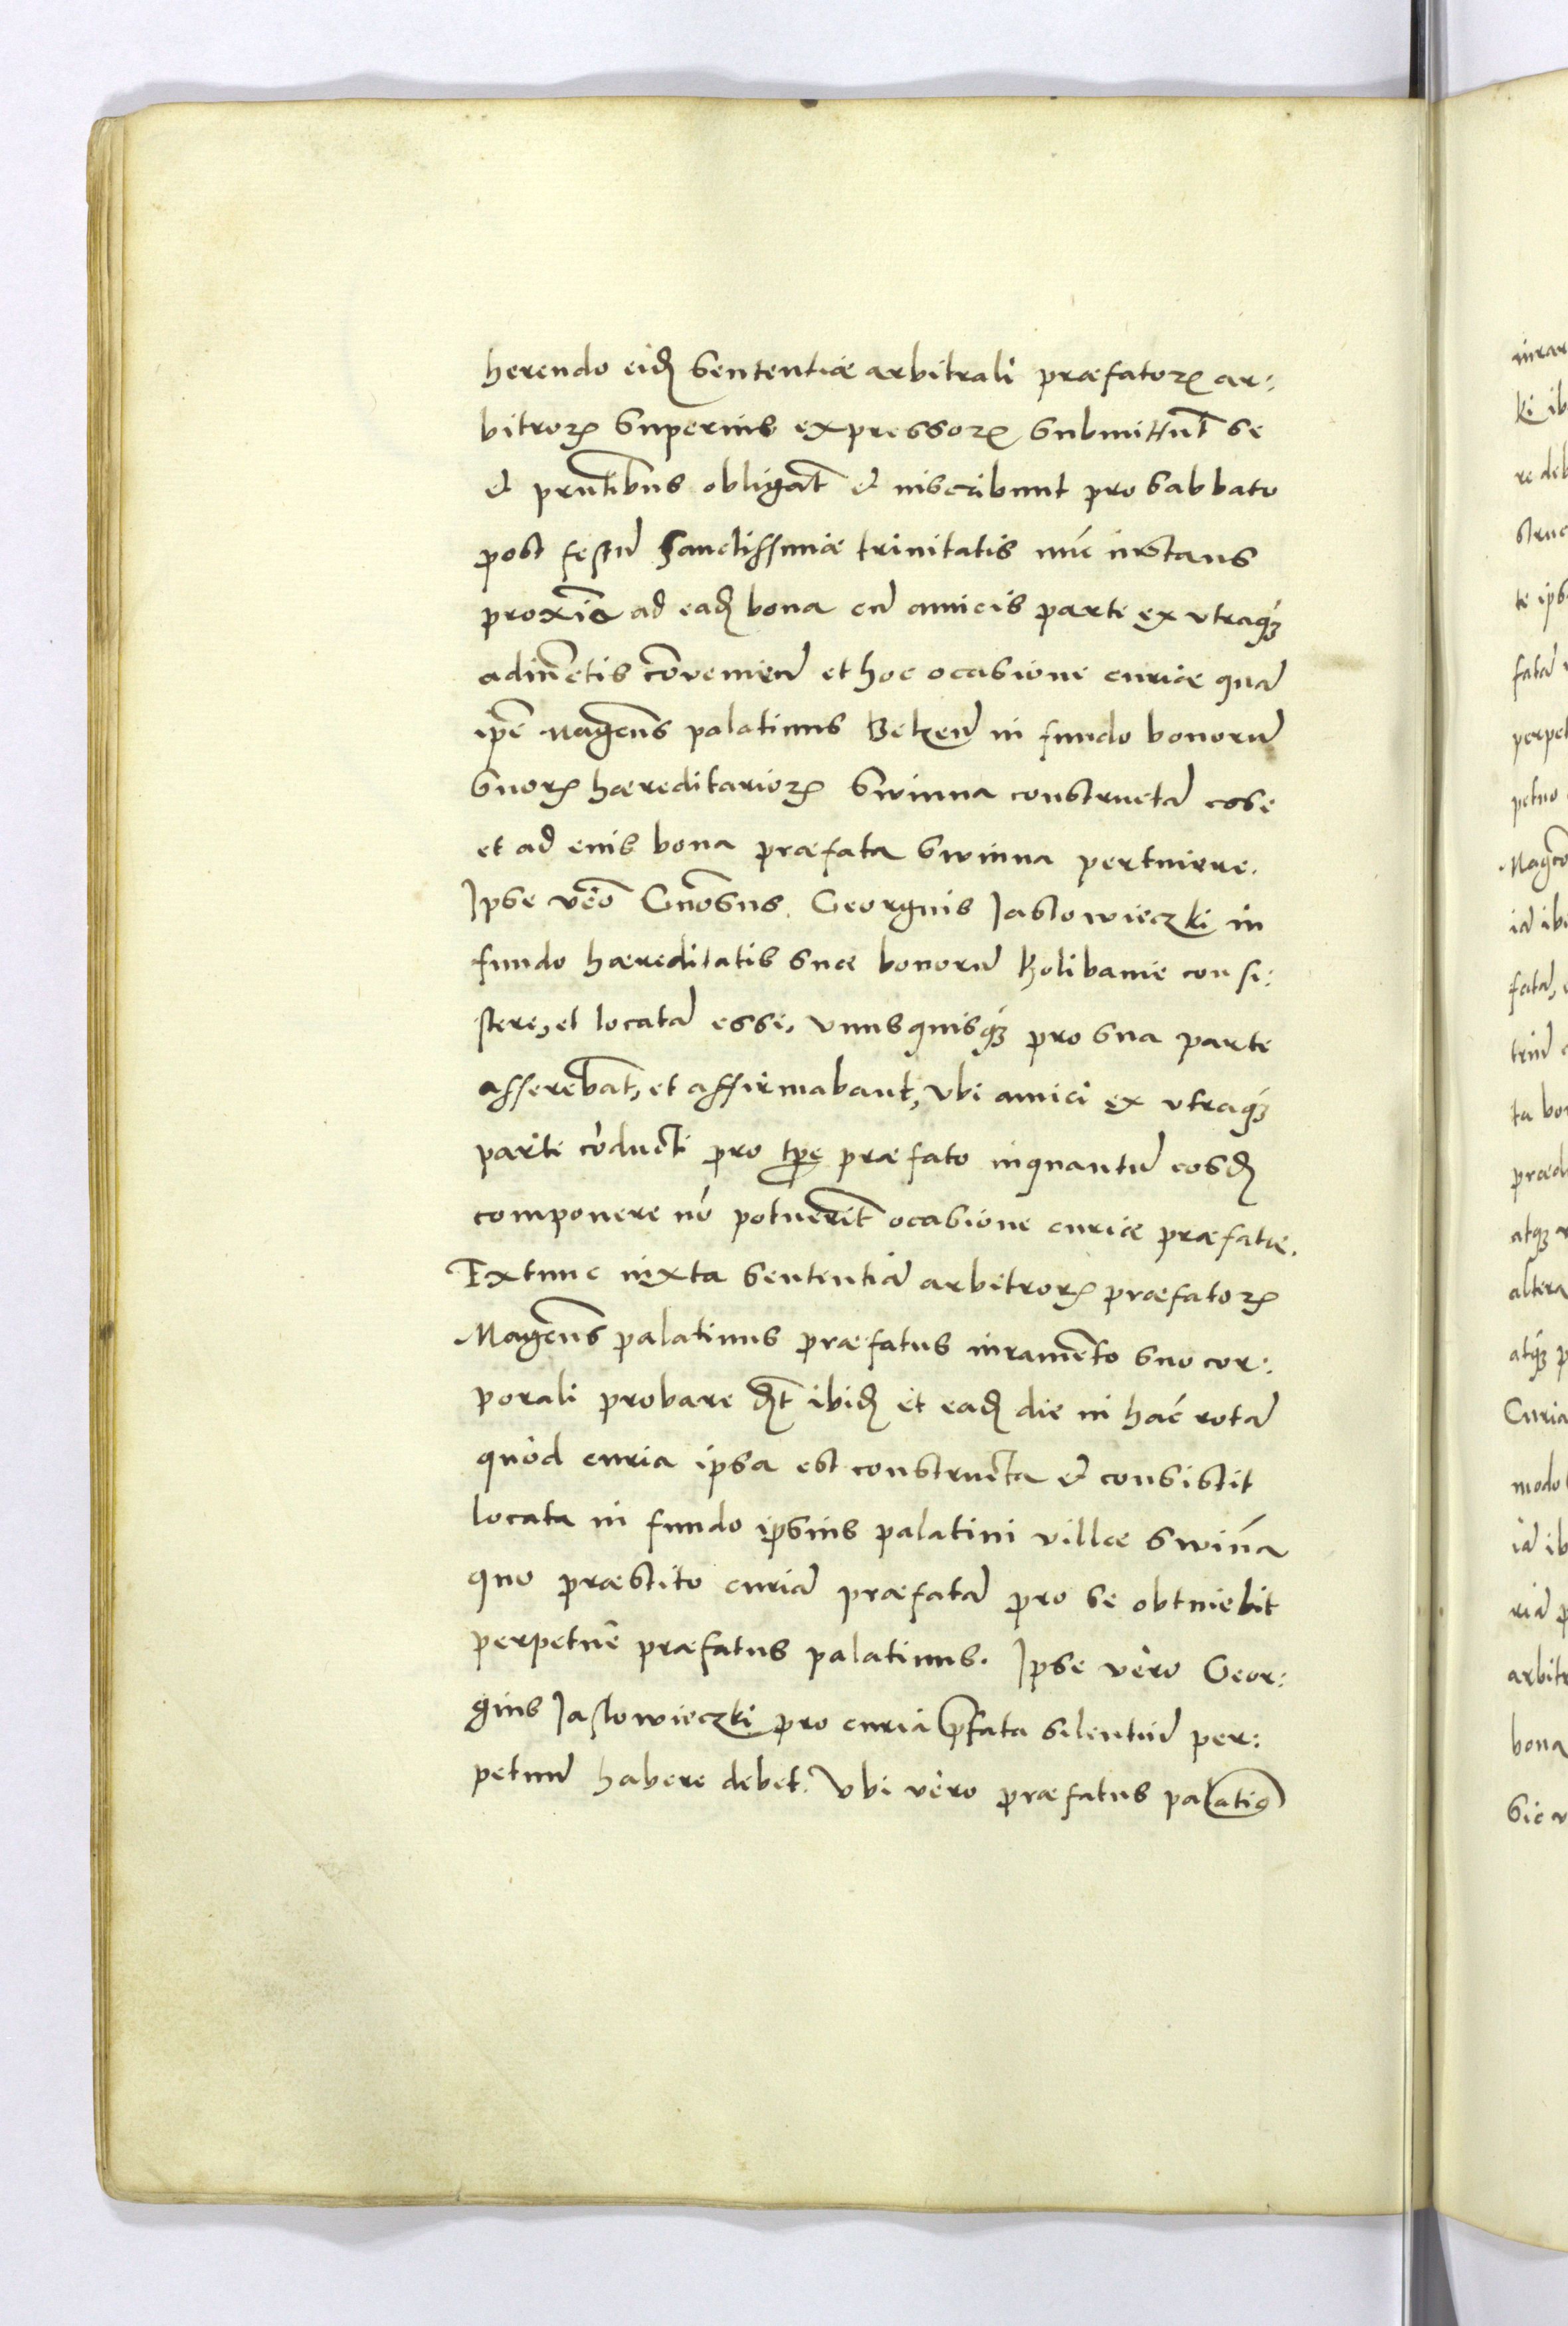 herendo eid̃ sententiæ arbitrali præfatorꝝ ar:
bitrorꝝ superius expressorꝝ submittūt se
et pr̃ntibus obligāt et inscribunt pro sabbato
post festū sanctissimæ trinitatis nūc instans
proxīe ad ead̃ bona cū amicis parte ex vtraqꝫ
adiūctis cōveniend̃ et hoc ocasione curiæ quā
ip̃e Magcūs palatinus Belzeñ in fundo bonorū
suorꝝ hæreditariorꝝ Swinna constructā esse
et ad eius bona præfata Swinna pertinere.
Ipse vēo Gnōsus. Georgius Jaslowieczki in
fundo hæreditatis suæ bonorū Kolibanie consi:
stere, et locatā esse, vnusquisqꝫ pro sua parte
asserebāt, et affirmabant, vbi amici ex vtraqꝫ
parte cōducti pro tp̃e præfato inquantū eosd̃
componere nō potuerīt ocasione curiæ præfatæ.
Extunc iuxta sententiā arbitrorꝝ præfatorꝝ
Magcūs palatinus præfatus iuramēto suo cor:
porali probare d̃t ibid̃ et ead̃ die in hāc rotā
quòd curia ipsa est constructa et consistit
locata in fundo ipsius palatini villæ Swiña
quo præstito curiā præfatā pro se obtinebit
perpetuè præfatus palatinus. Ipse vèro Geor:
gius Jaslowieczki pro curia p̃fata silentiū per:
petuū habere debet. Vbi vèro præfatus palatiꝰ